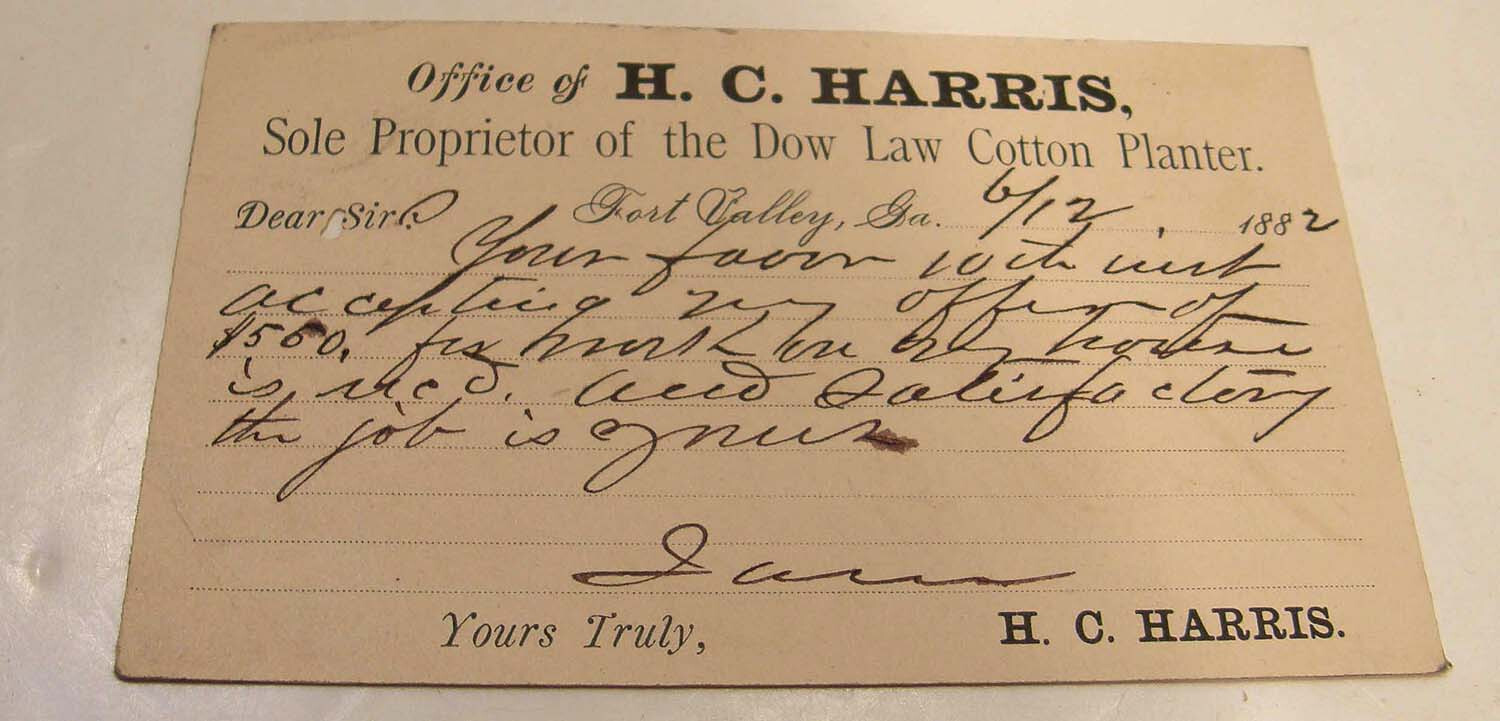 Office of H. C. HARRIS,
Sole Proprietor of the Dow Law Cotton Planter.
Dear Sir: Fort Valley, Ga. 6/12, 1882
Your favor 10th inst
accepting my offer of
$550. for work on my house
is recd. and satisfactory
the job is yours
I am
Yours Truly, H. C. HARRIS.